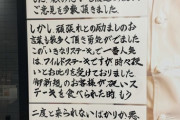 ご意見を多数頂きました
しかし頑張れとの励ましのお
言葉も数多く頂き勇気がでました
この「いきなりステーキ」で一番人気
は、ワイルドステーキですが時々硬
いとお叱りを受けております
御新規のお客様が硬いス
テーキを食べられた時もう
二度と来られないばかりか悪